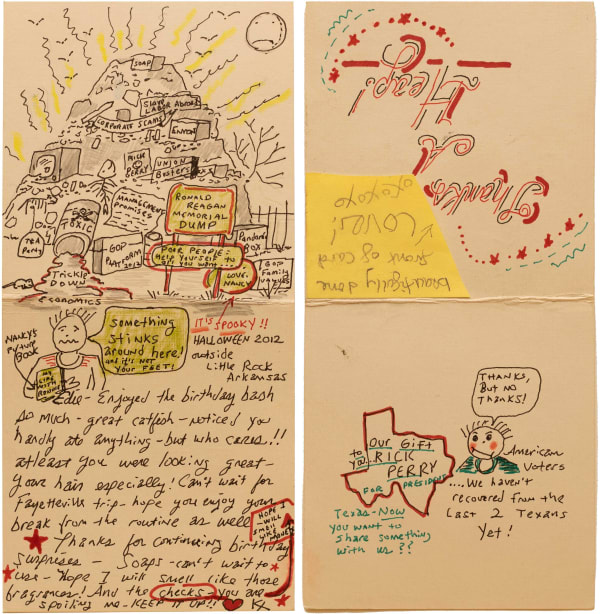 SOAP
SLAVE
LABOR ABROAD
CORPORATE SCAMS
ENRON
RICK
PERRY
UNION
Busters
MANAGEMENT
PROMISES
RONALD
REAGAN
MEMORIAL
DUMP
TOXIC
TEA
Party
GOP
PLATFORM
2012
POOR PEOPLE:
HELP YOURSELF TO
ALL YOU WANT...
LOVE,
NANCY
Pandora's
BOX
GOP
Family
VALUES
Trickle
DOWN
ECONOMICS
IT IS SPOOKY!!
HALLOWEEN 2012
outside
Little Rock
Arkansas
NANCY'S
POP-UP
BOOK
MY
LIFE
WITH
RONNIE
something
stinks
around here!
and it's NOT
YOUR FEET!
Enjoyed the birthday bash
so much - great catfish - noticed you
hardly ate anything - but who cares!!
atleast you were looking great -
your hair especially! Can't wait for
Fayetteville trip - hope you enjoy your
break from the routine as well
Thanks for continuing birthday
surprises - Soaps - can't wait to
use - Hope I will smell like those
fragrances! And the checks - you are
spoiling me - KEEP IT UP!!
HOPE
I WILL
SMELL
LIKE
Thanks
A
Heap!
beautifully done
front of card
LOVE!
xoxoxo
THANKS,
BUT NO
THANKS!
Our Gift
to you
RICK
PERRY
FOR PRESIDENT
Texas - Now
you want to
share something
with us??
American
Voters
....We haven't
recovered from the
Last 2 Texans
Yet!